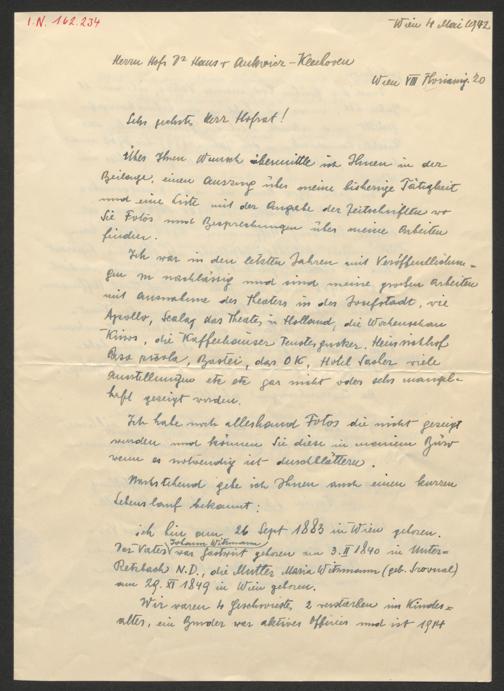 I.N. 162.234
Wien 4 Mai 1942
Herrn Hofr Dr Hans v Ankwicz-Kleehoven
Wien VIII Florianig. 20
Sehr geehrter Herr Hofrat!
Über Ihren Wunsch übermittle ich Ihnen in der
Beilage, einen Auszug über meine bisherige Tätigkeit
und eine Liste mit der Angabe der Zeitschriften wo
Sie Fotos und Besprechungen über meine Arbeiten
finden.
Ich war in den letzten Jahren mit Veröffentlichun-
gen zu nachlässig und sind meine großen Arbeiten
mit Ausnahme des Theaters in der Josefstadt, wie
Apollo, Scala, das Theater in Holland, die Wochenschau
Kinos, die Kaffeehäuser Heinrichhof
Bastei, das OK, Hotel Sacher viele
Ausstellungen etc etc gar nicht oder sehr mangel-
haft gezeigt worden.
Ich habe noch allerhand Fotos die nicht gezeigt
wurden und können Sie diese in meinem Büro
wenn es notwendig ist durchblättern.
Nachstehend gebe ich Ihnen auch einen kurzen
Lebenslauf bekannt:
ich bin am 26 Sept 1883 in Wien geboren.
Johann Witzmann
Der Vater war Gastwirt geboren am 3. II 1840 in Unter-
Retzbach N.D., die Mutter Maria Witzmann (geb.
am 29. XI 1849 in Wien geboren.
Wir waren 4 Geschwister, 2 verstarben im Kindes=
alter, ein Bruder war aktiver Offizier und ist 1914